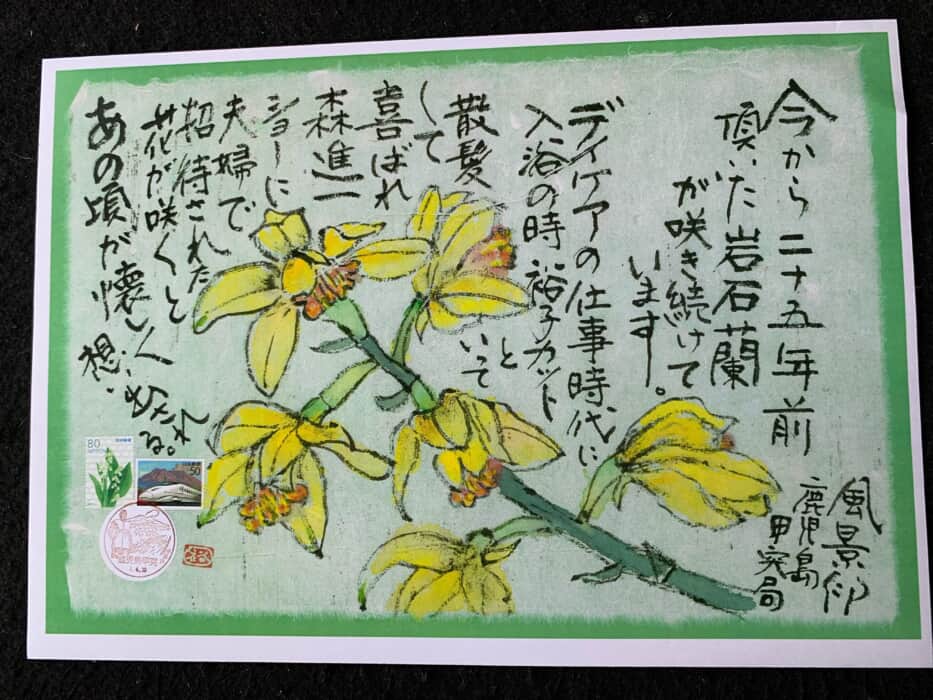 今から二十五年前
頂いた岩石蘭
が咲き続けて
います。
デイケアの仕事時代に
入浴の時裕子カット
と
いって
散髪
して
喜ばれ
森進一
ショーに
夫婦で
招待された
花が咲くと
あの頃が懐しく
想い
出され
る。
風景印
鹿児島
甲突局
80
日本郵便
50
日本郵便